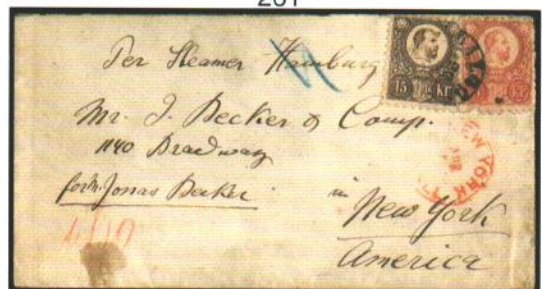 Per Steamer Hamburg
15 Kr
Kr
Mr. J. Becker & Comp.
1140 Broadway
for Mr. Jonas Becker
in New York
America
NEW YORK